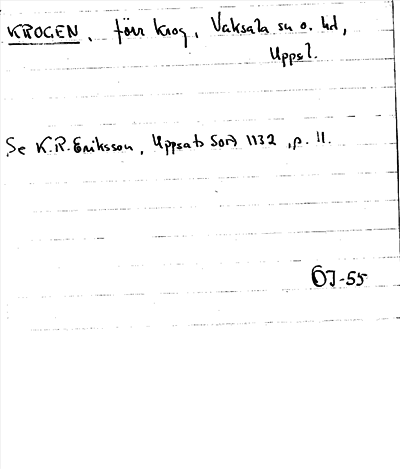 KROGEN, förr krog, Vaksala sn o. hd,
Uppsl.
Se K.R. Eriksson, Uppsats SOÄ 1132, p. 11.
ÖJ-55